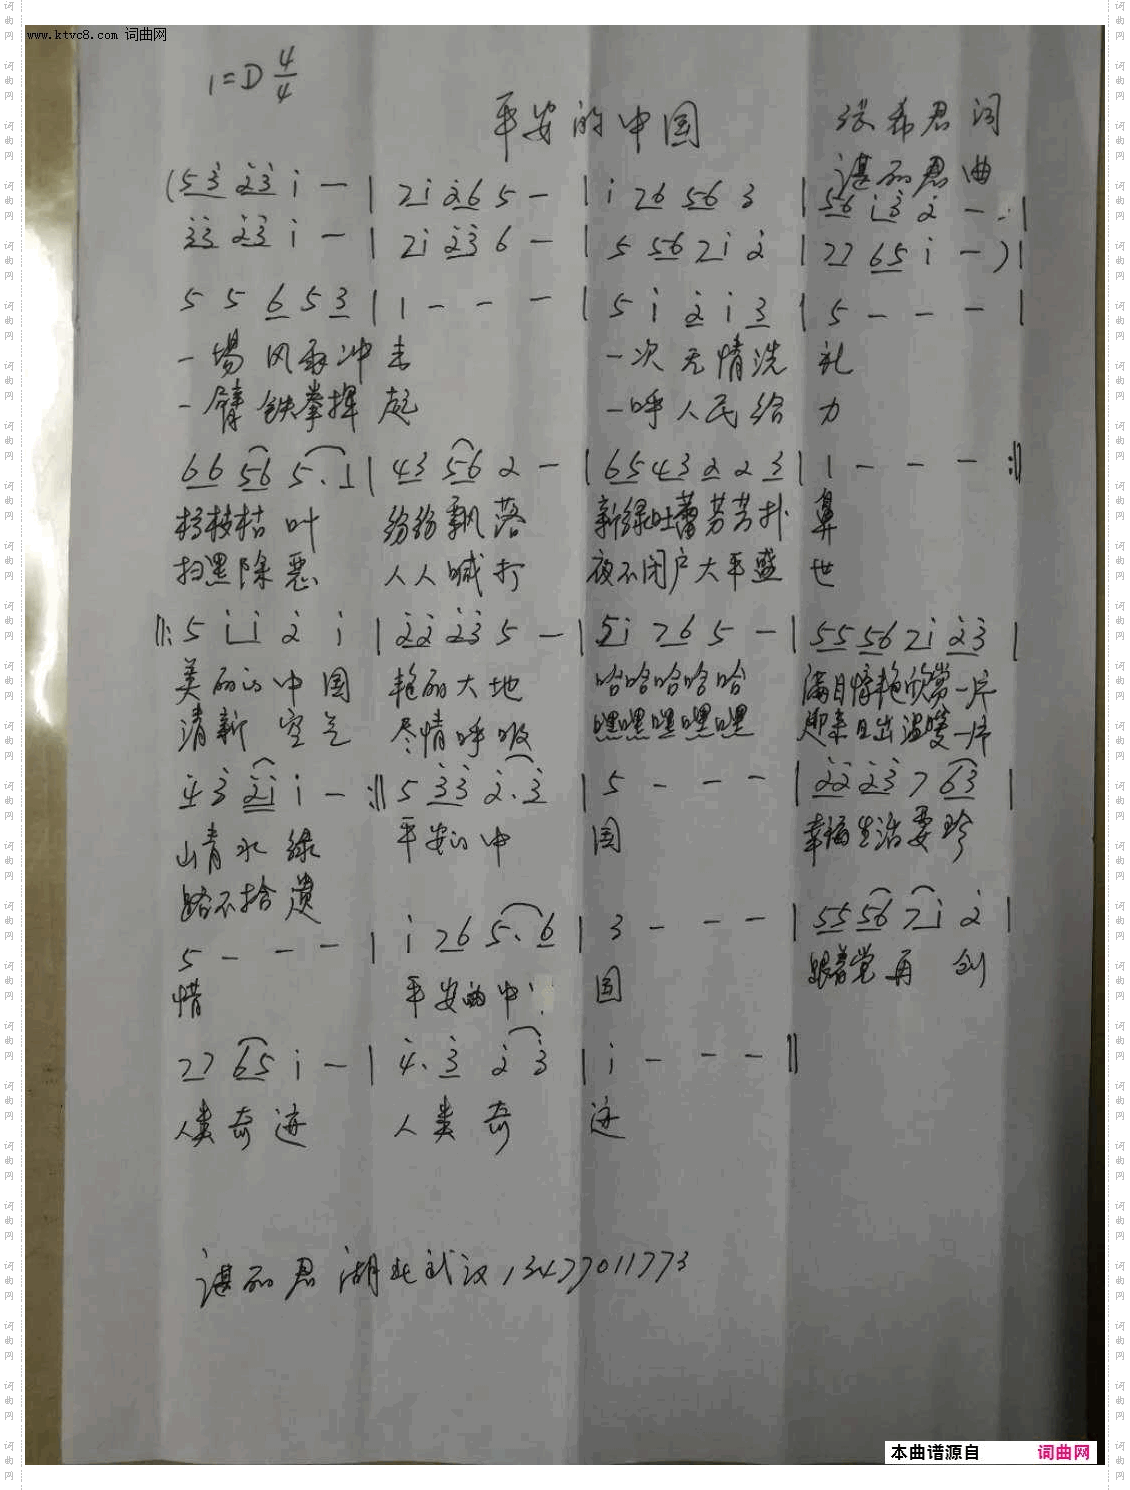 www.ktvc8.com 词曲网
1=D 4/4
平安的中国 张希君 词
谌丽君 曲
(5 3 2 3 i - | 7 i 2 6 5 - | i 7 6 5 6 3 | 5 6 i 3 2 - - |
3 3 2 3 i - | 7 i 2 3 6 - | 5 5 6 7 i 2 | 7 7 6 5 i - ) |
5 5 6 5 3 | 1 - - - | 5 i 2 i 3 | 5 - - - |
一场风雨冲击 一次无情洗礼
一臂铁拳挥起 一呼人民给力
6 6 5 6 5 . 1 | 4 3 5 6 2 - | 6 5 4 3 2 2 3 | 1 - - - :||
枯叶 纷纷飘落 新绿吐蕾芳芳扑鼻
扫黑除恶 人人喊打 夜不闭户太平盛世
||: 5 i i 2 i | 2 2 2 3 5 - | 5 i 7 6 5 - | 5 5 5 6 7 i 2 3 |
美丽的中国 艳丽大地 哈哈哈哈哈 满目惊艳欣赏一片
清新空气 尽情呼吸 嘿嘿嘿嘿嘿 迎来日出温暖一片
4 3 2 i i - :|| 5 3 3 2 . 3 | 5 - - - | 2 2 2 3 7 6 3 |
山青水绿 平安的中 国 幸福生活要珍
路不拾遗
5 - - - | i 7 6 5 . 6 | 3 - - - | 5 5 5 6 7 i 2 |
惜 平安的中 国 跟着党再创
7 7 6 5 i - | 4 . 3 2 3 | i - - - ||
人类奇迹 人类奇 迹
谌丽君 湖北武汉 13477011773
本曲谱源自 词曲网